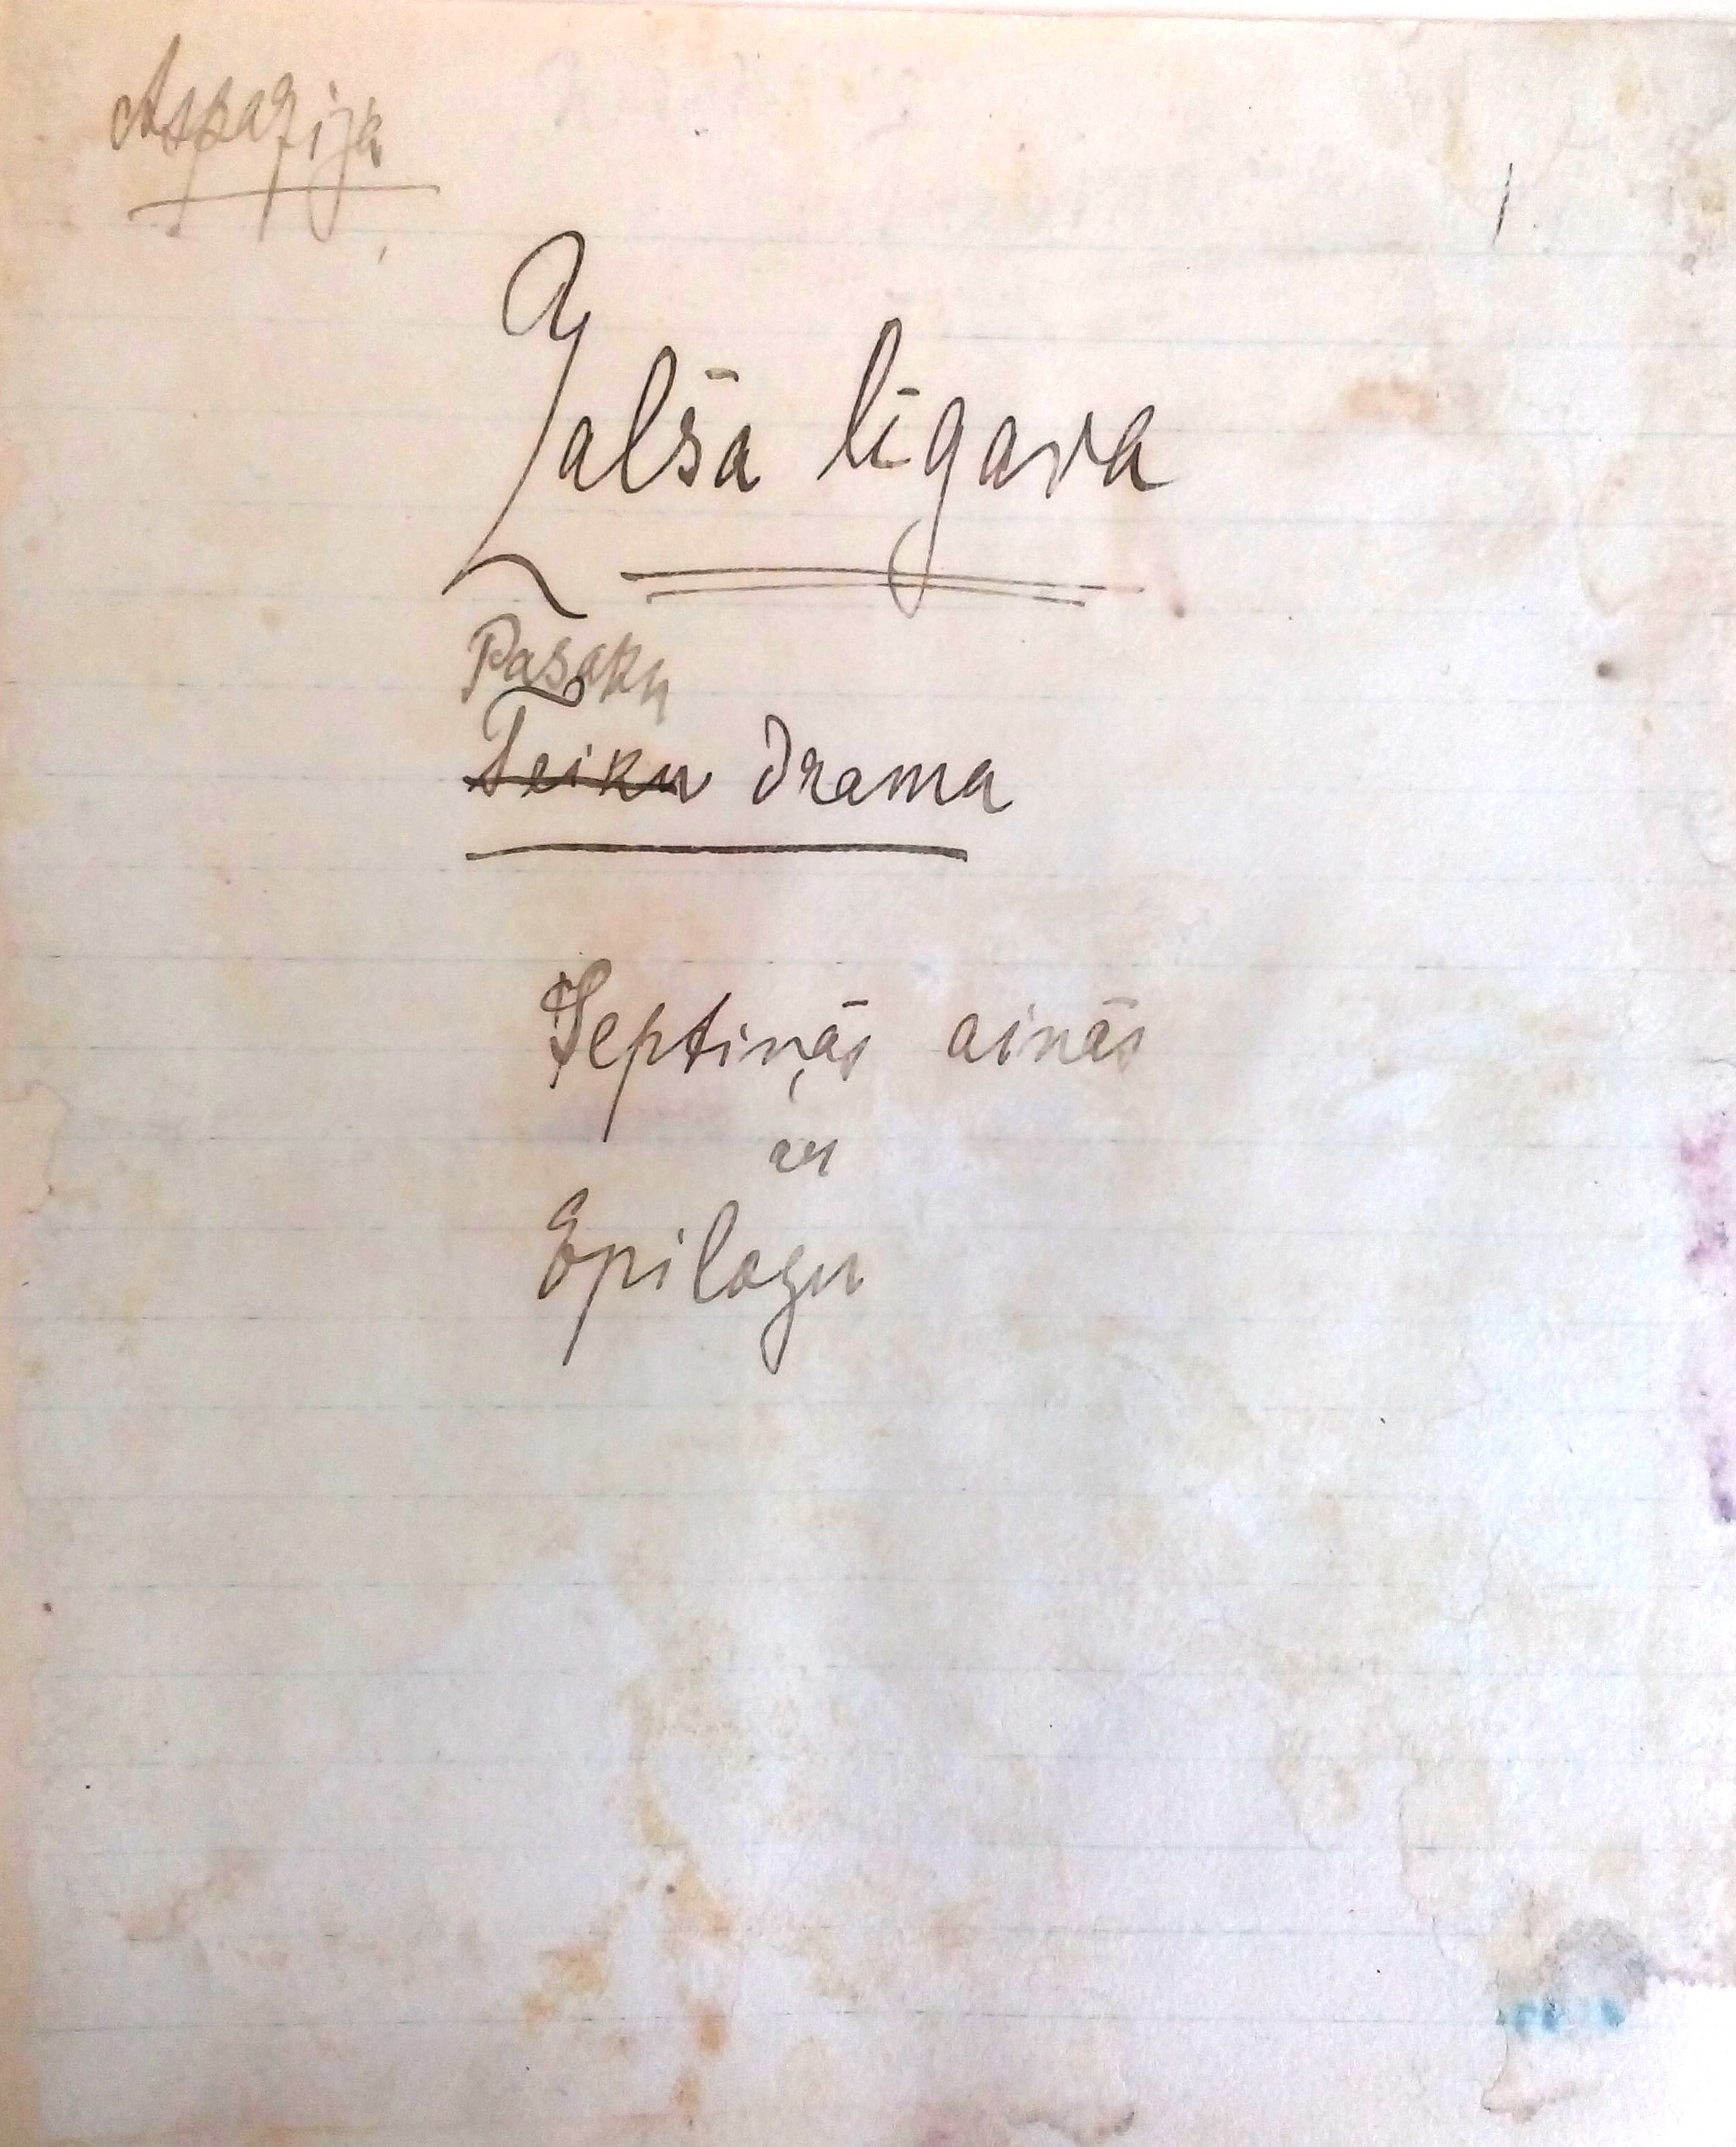 Aspazija
Zalša līgava
Pasaku
Teiku drama
Septiņās ainās
ar
Epilogu